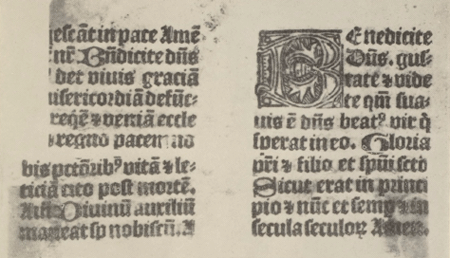 escāt in pace Amē
nē. Bn̄dicite dn̄s
det viuis graciā
isericordiā defūc⸗
reqē ⁊ veniā eccle
regno pacem
bis pctōrib⁹ vitā ⁊ le⸗
ticiā cito post mortē.
Diuinū auxiliū
maneat sp nobiscū. A
Enedicite
Dūs. gus⸗
tate ⁊ vide
te qm̄ sua⸗
uis ē dn̄s beat⁹ vir q̄
sperat in eo. Gloria
pr̄i ⁊ filio et spūi scto
Sicut erat in princi
pio ⁊ nūc et semp ⁊ in
secula seculoꝝ Amen.